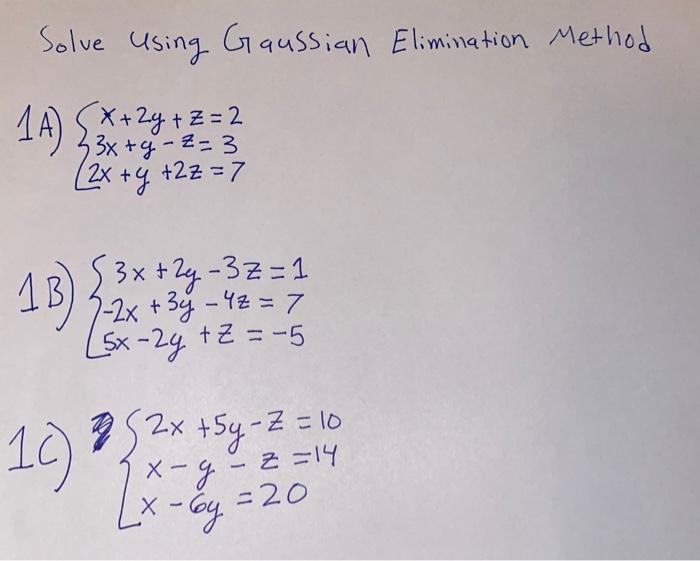 Solve using Gaussian Elimination Method
1A) { x + 2y + z = 2
3x + y - z = 3
2x + y + 2z = 7
1B) { 3x + 2y - 3z = 1
-2x + 3y - 4z = 7
5x - 2y + z = -5
1C) { 2x + 5y - z = 10
x - y - z = 14
x - 6y = 20